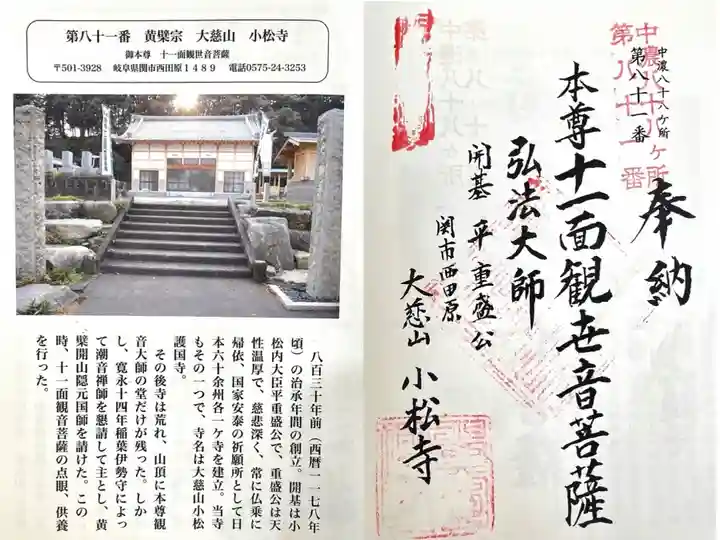 第八十一番　黄檗宗　大慈山　小松寺
御本尊　十一面観世音菩薩
〒501-3928　岐阜県関市西田原１４８９　電話0575-24-3253
八百三十年前（西暦一一七八年
頃）の治承年間の創立。開基は小
松内大臣平重盛公で、重盛公は天
性温厚で、慈悲深く、常に仏乗に
帰依、国家安泰の祈願所として日
本六十余州各一ケ寺を建立。当寺
もその一つで、寺名は大慈山小松
護国寺。
その後寺は荒れ、山頂に本尊観
音大師の堂だけが残った。しか
し、寛永十四年稲葉伊勢守によっ
て潮音禅師を懇請して主とし、黄
檗開山隠元国師を請けた。この
時、十一面観音菩薩の点眼、供養
を行った。
中濃八十八ヶ所
第八十一番
中濃八十八ケ所
第八十一番
奉納
本尊十一面観世音菩薩
弘法大師
開基　平重盛公
関市西田原
大慈山　小松寺